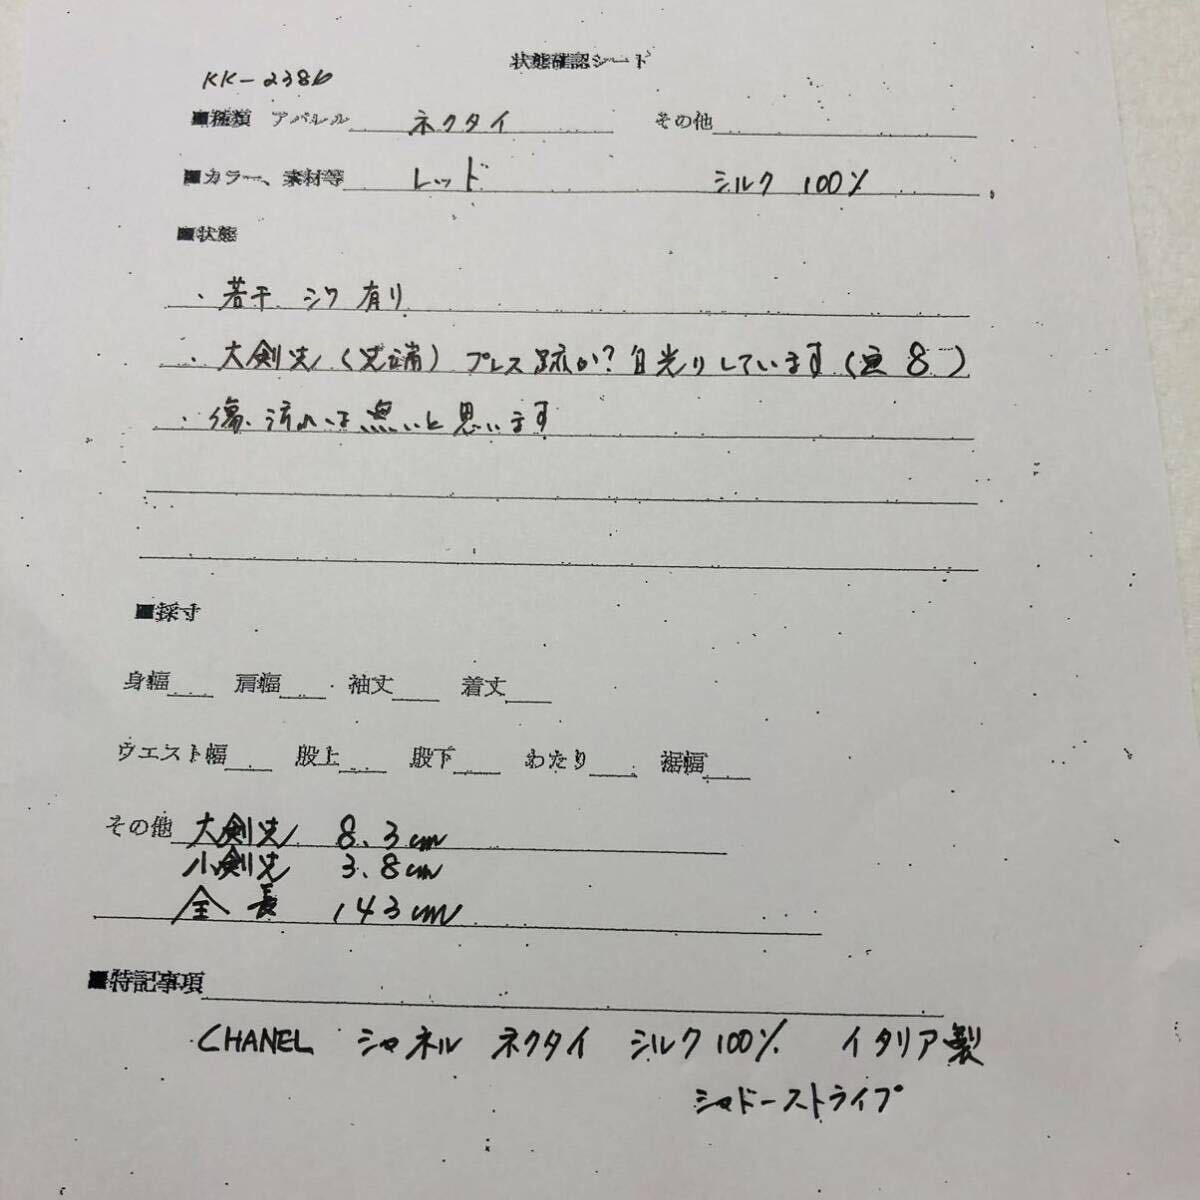 状態確認シート
KK-2386
■種類 アパレル ネクタイ その他
■カラー、素材等 レッド シルク 100%
■状態
・若干 シワ 有り
・大剣先(先端) プレス跡か? 目光りしています( 8 )
・傷、汚れは無いと思います
■採寸
身幅 肩幅 袖丈 着丈
ウエスト幅 股上 股下 わたり 裾幅
その他 大剣先 8.3cm
小剣先 3.8cm
全長 143cm
■特記事項
CHANEL シャネル ネクタイ シルク100% イタリア製
シャドーストライプ